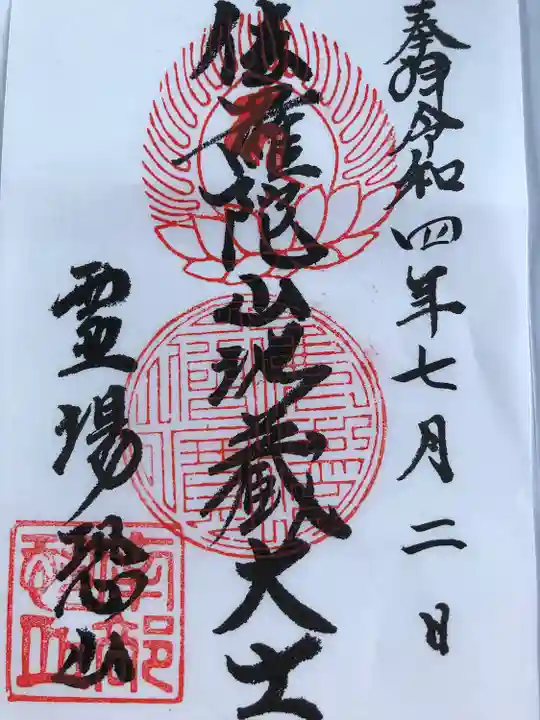 奉拝 令和四年七月二日
伽羅陀山地蔵大士
霊場恐山